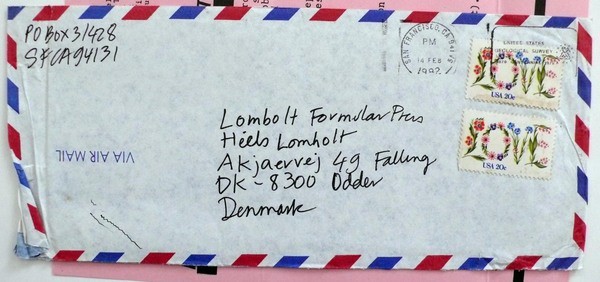 PO Box 31428
SF CA 94131
SAN FRANCISCO, CA 941
PM
14 FEB
1982
UNITED STATES
GEOLOGICAL SURVEY
LOVE
USA 20c
LOVE
USA 20c
VIA AIR MAIL
Lombolt Formular Press
Héels Lomholt
Akjaervej 49 Falling
DK-8300 Odder
Denmark